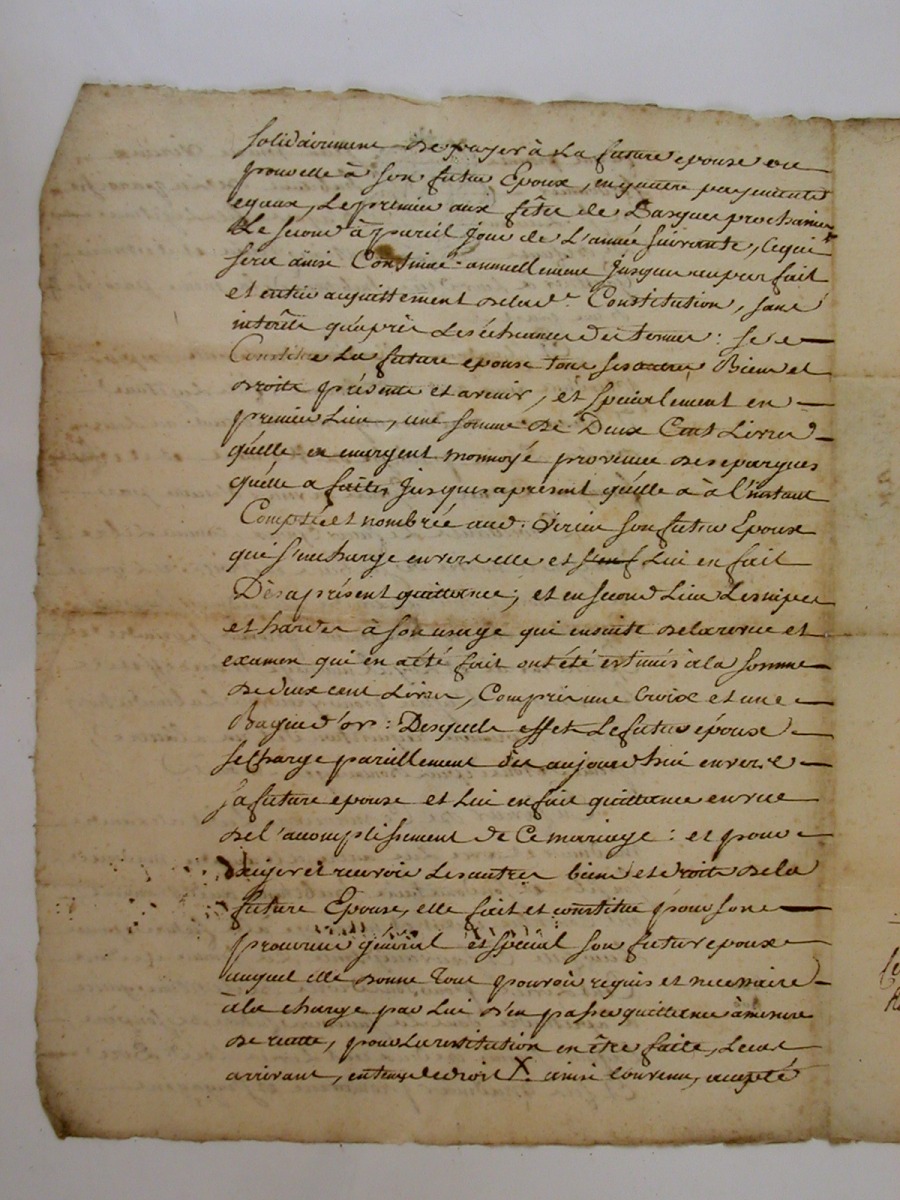 solidairement de payer à La future epouse ou
pour elle à son futur Epoux, en quatre payements
egaux, Le premier aux fêtes de Pasques prochaines
Le second à pareil jour de L'année suivante, Ce qui
sera ainsi Continué annuellement jusques au parfait
et entier acquittement de lad.e Constitution, sans
intérêts qu'après Les échéances des termes : se
Constitue La future epouse tous ses autres Biens et
droits présents et avenir, et spécialement en
premier Lieu, une somme de Deux Cent Livres
qu'elle en argent monnoyé provenue des epargnes
qu'elle a faites jusques apresent qu'elle a à l'instant
Comptée et nombrée aud. son futur Epoux
qui s'encharge envers elle et Lui en fait
Dès aprésent quittance ; et en second Lieu Les nipes
et hardes à son usage qui ensuite de la revue et
examen qui en a été fait ont été estimés à la somme
de deux cent Livres, Compris une Croix et une
Bague d'or : Desquels effets Le futur époux
se Charge pareillement dès aujourd'hui envers
sa future epouse et Lui en fait quittance en vue
de l'acomplissement de Ce mariage : et pour
exiger et recevoir Les autres biens et droits de la
future Epouse, elle fait et constitue pour son
procureur général et spécial son futur epoux
auquel elle donne tout pouvoir requis et necessaire
à la charge par Lui d'en passer quittance à mesure
de recette, pour La restitution en être faite, Le cas
arrivant, en tems de droit X. ainsi Convenu, accepté